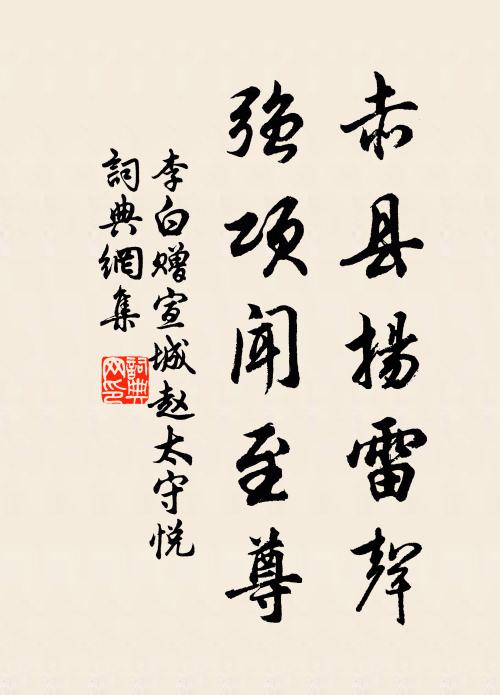 赤县揚雷聲
强项聞至尊
李白赠宣城赵太守悦
詞典網集
詞典网印